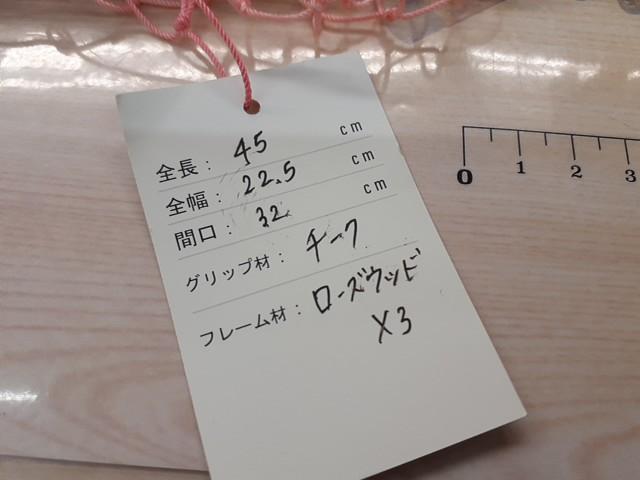 全長： 45 cm
全幅： 22.5 cm
間口： 32 cm
グリップ材： チーク
フレーム材： ローズウッド
×3
0 1 2 3